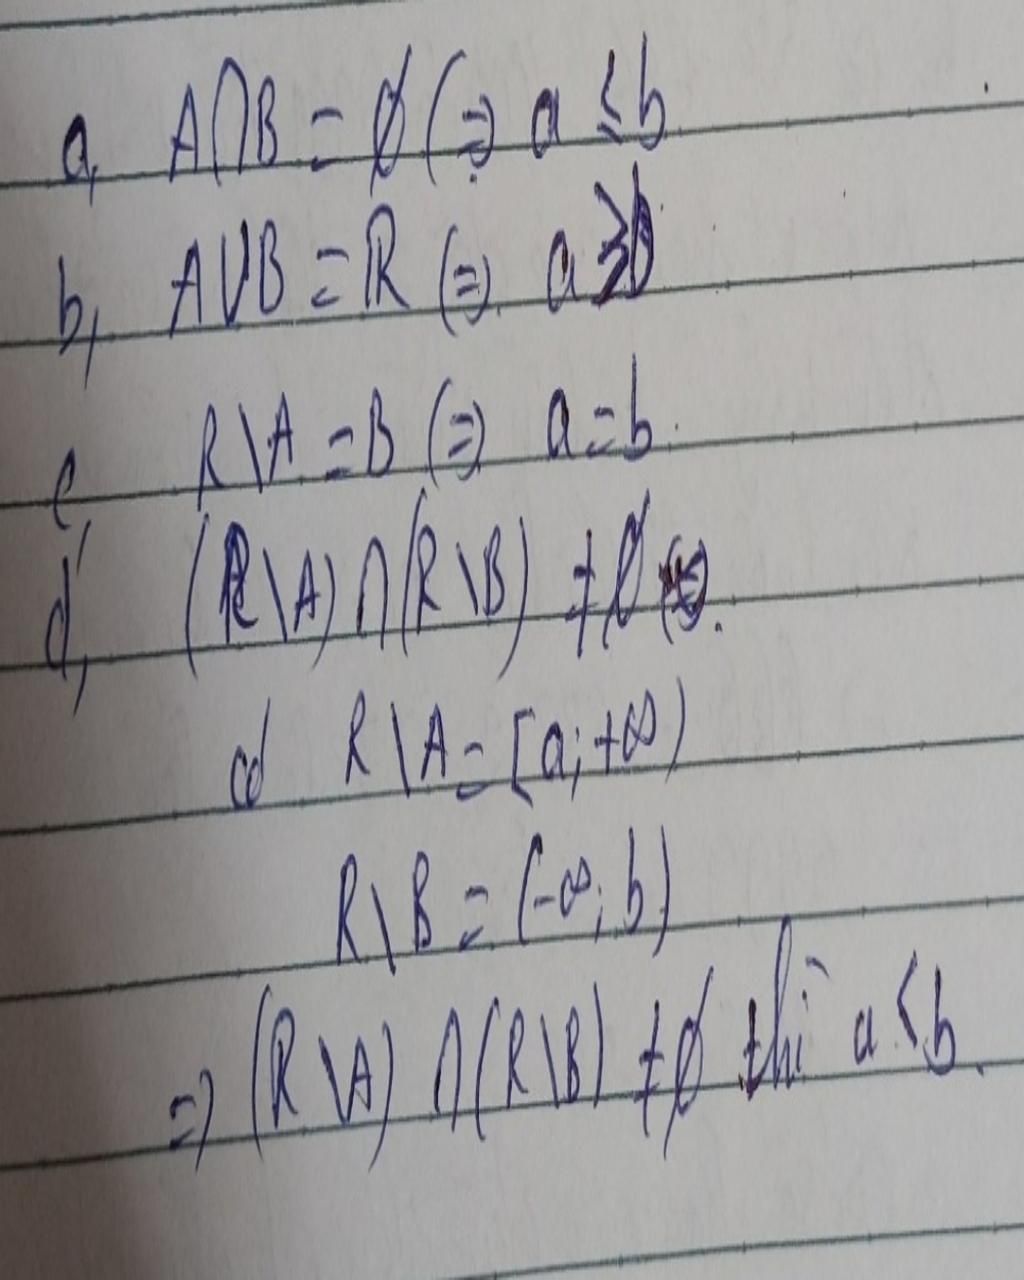 a, A∩B = ∅ (=) a ≤ b
b, A∪B = R (=) a ≥ b
c, R\A = B (=) a = b.
d, (R\A) ∩ (R\B) ≠ ∅
có R\A = [a; +∞)
R\B = (-∞; b)
=) (R\A) ∩ (R\B) ≠ ∅ thì a < b.